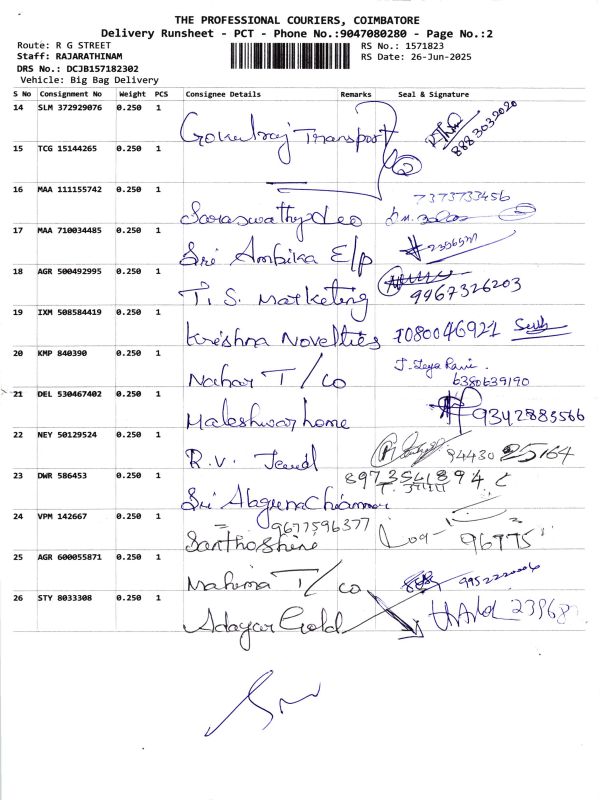 THE PROFESSIONAL COURIERS, COIMBATORE
Delivery Runsheet - PCT - Phone No.:9047080280 - Page No.:2
Route: R G STREET
Staff: RAJARATHINAM
DRS No.: DCJB157182302
Vehicle: Big Bag Delivery
RS No.: 1571823
RS Date: 26-Jun-2025
S No Consignment No Weight PCS Consignee Details Remarks Seal & Signature
14 SLM 372929076 0.250 1 Gokulraj Transport 8883032020
15 TCG 15144265 0.250 1
16 MAA 111155742 0.250 1 Saraswathy Leo 7373733456
17 MAA 710034485 0.250 1 Sri Ambika E/p
18 AGR 500492995 0.250 1 T. S. Marketing 9967326203
19 IXM 508584419 0.250 1 Krishna Novelties 7080046921
20 KMP 840390 0.250 1 Nahar T/co J. Jeya Rani 6380639190
21 DEL 530467402 0.250 1 Maleshwar home 9342883566
22 NEY 50129524 0.250 1 R.V. 94430 25164
23 DWR 586453 0.250 1 Sri
24 VPM 142667 0.250 1 9677596377 96775
25 AGR 600055871 0.250 1 Mahima T/co
26 STY 8033308 0.250 1 Adayar Gold